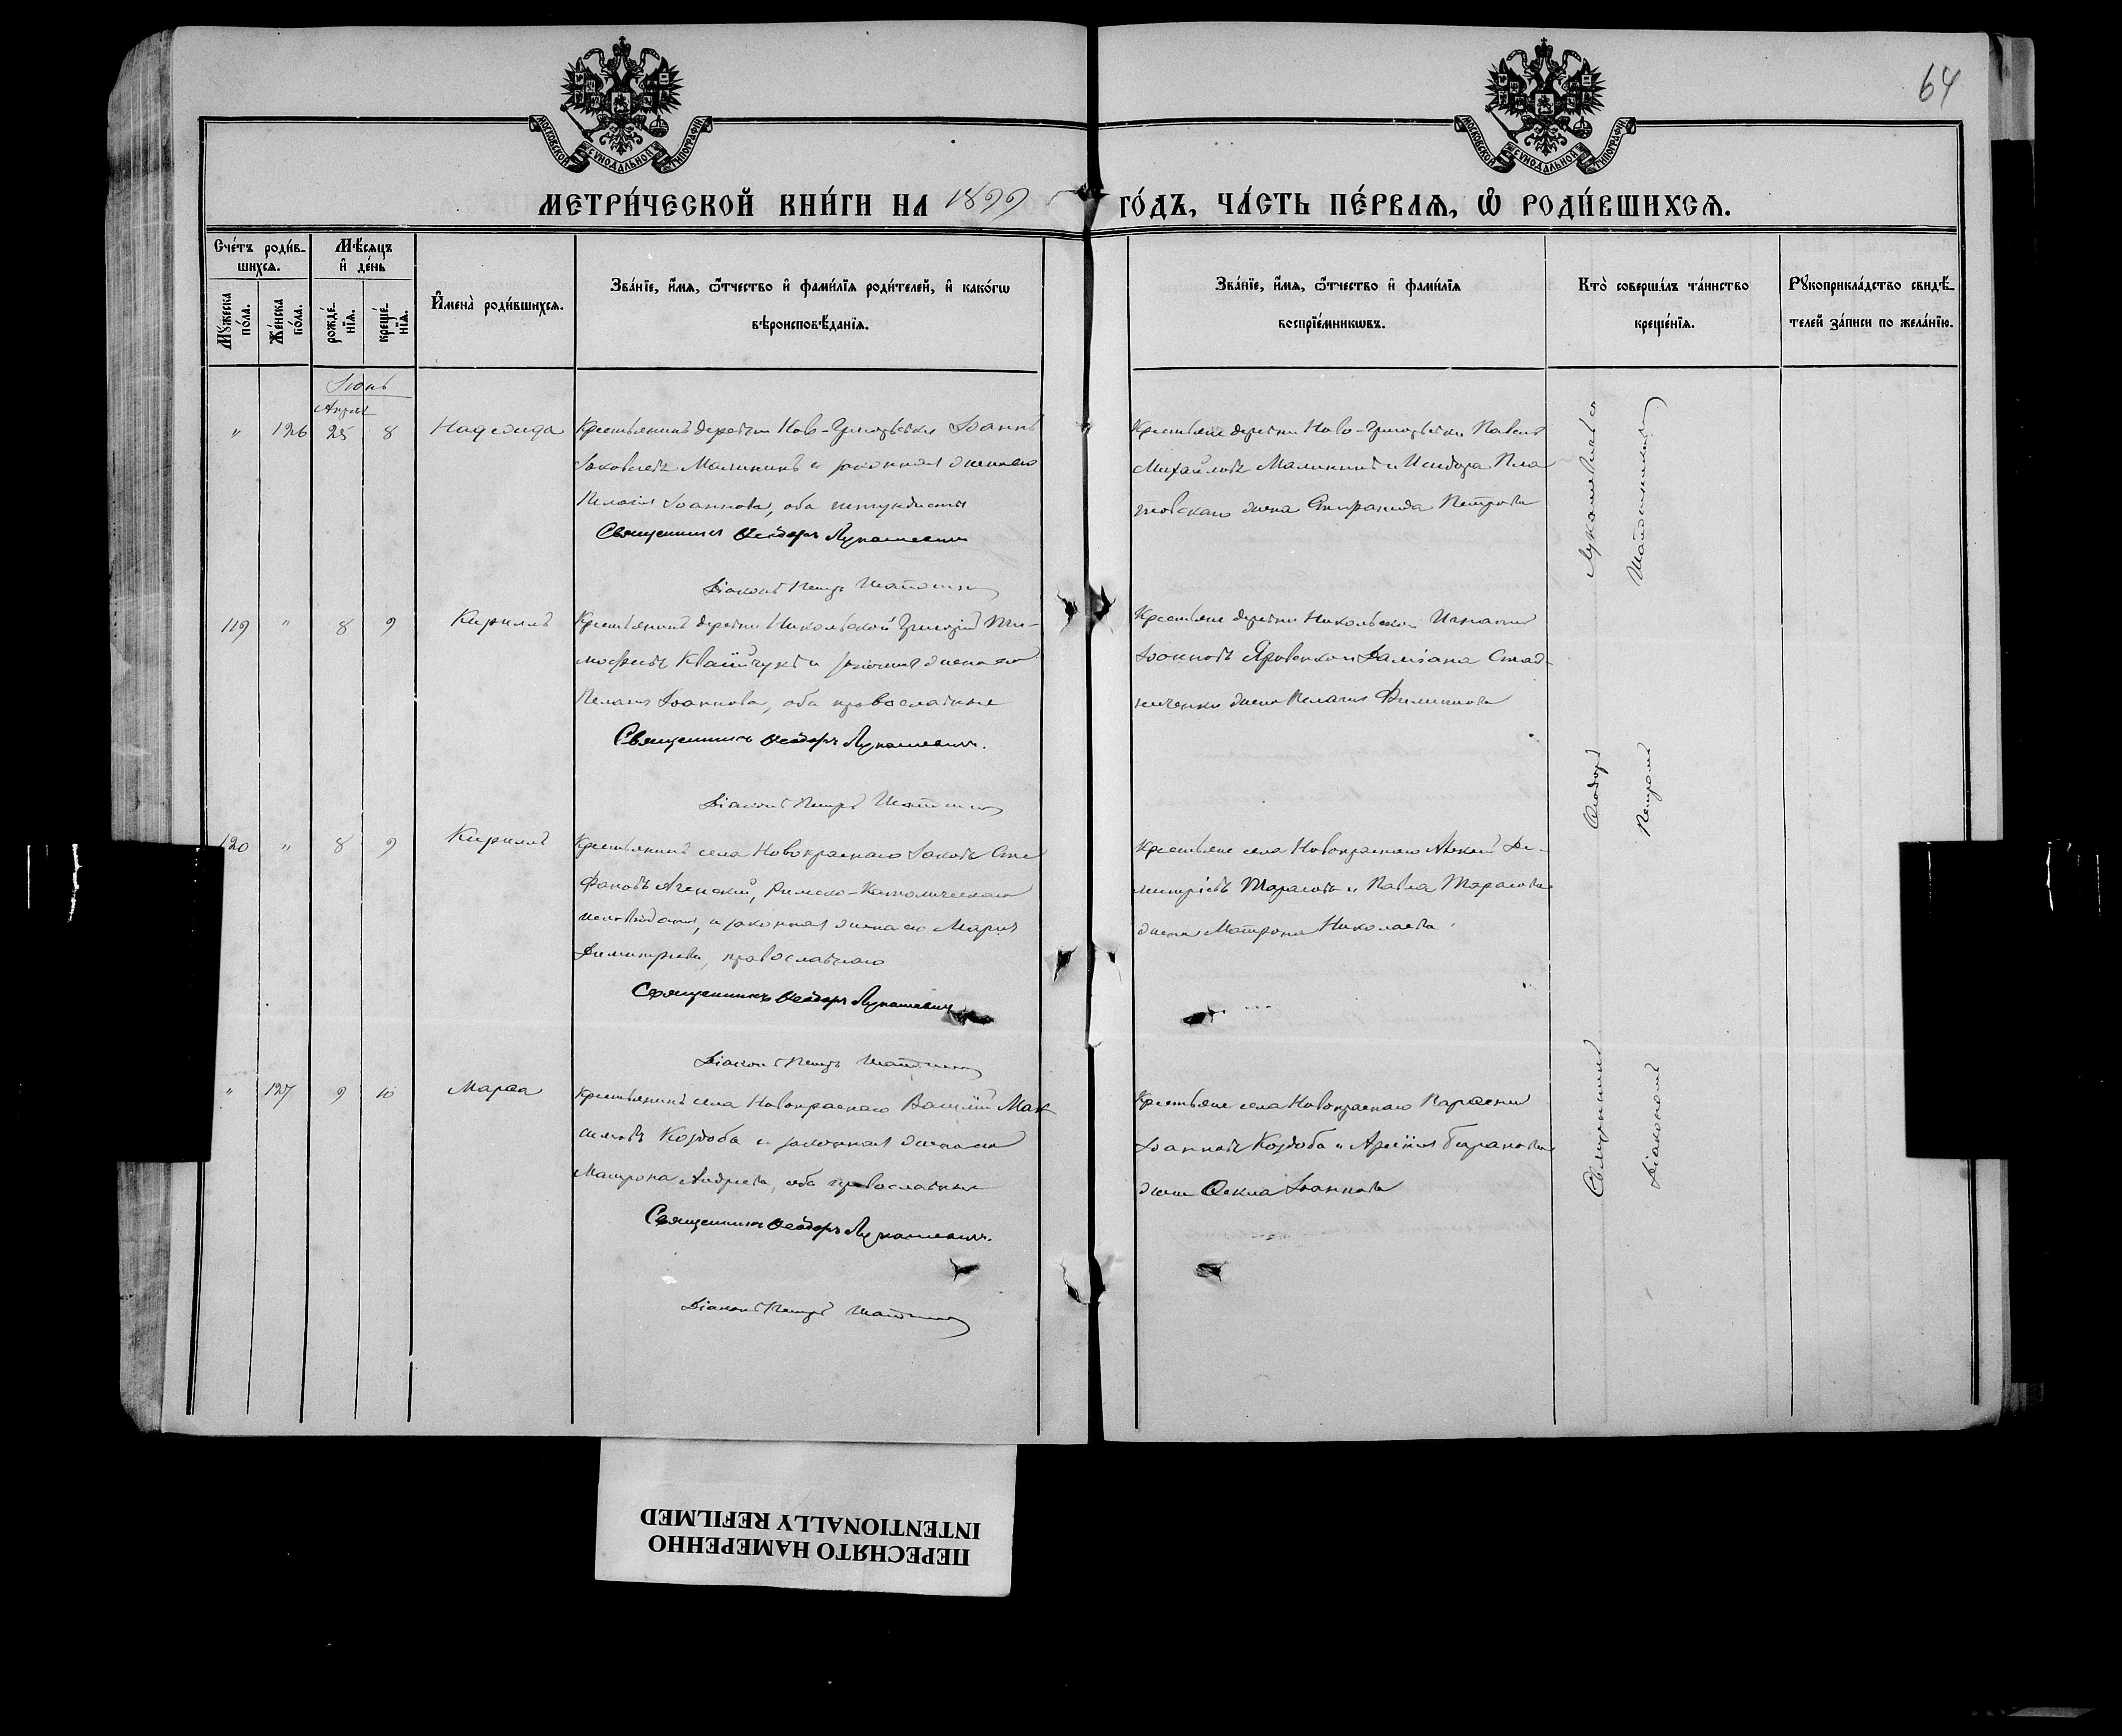 64
МОСКОВСКОЙ СѴНОДАЛЬНОЙ ТИПОГРАФІИ
МОСКОВСКОЙ СѴНОДАЛЬНОЙ ТИПОГРАФІИ
МЕТРИ́ЧЕСКОЙ КНИ́ГИ НА 1899 ГО́ДЪ, ЧА́СТЬ ПЕ́РВАЯ, Ѽ РОДИ́ВШИХСЯ.
Сче́тъ роди́в-
шихся.
Мꙋ́жеска по́ла.
Же́нска по́ла.
Мѣ́сяцъ и҆ де́нь
рожде́-
нїя.
креще́-
нїя.
И҆мена̀ роди́вшихся.
Зва́нїе, и҆́мя, ѻ҆́тчество и҆ фами́лїя роди́телей, и҆ како́гѡ
вѣроисповѣ́данїя.
Зва́нїе, и҆́мя, ѻ҆́тчество и҆ фами́лїя
воспрїе́мникѡвъ.
Кто̀ соверша́лъ та́инство
креще́нїя.
Рꙋкоприкла́дство свидѣ́-
телей за́писи по жела́нїю.
Іюнь
Апрѣля
" 126 25 8 Надежда
Крестьянинъ деревни Ново-Григорьевки Іоаннъ
Іаковлевъ Малининъ и законная жена его
Пелагія Іоаннова, оба штундисты
Священникъ Ѳеодоръ Лукашевичъ
Діаконъ Петръ
Крестьяне деревни Ново-Григорьевки Павелъ
Михайловъ Малининъ и Исидора Пла
жена Петрова
119 " 8 9 Кириллъ
Крестьянинъ деревни Никольской Григорій Ти-
мофеевъ Квайчукъ и законная жена его
Пелагія Іоаннова, оба православные
Священникъ Ѳеодоръ Лукашевичъ.
Діаконъ Петръ
Крестьяне деревни Никольской Игнатій
Іоанновъ Яровенко и Даміана Стад-
ниченки жена Пелагія Филиппова
120 " 8 9 Кириллъ
Крестьянинъ села Новокраснаго Іаковъ Сте
фановъ Римско-Католическаго
исповѣданія, и законная жена его Марія
Димитріева, православнаго
Священникъ Ѳеодоръ Лукашевичъ
Діаконъ Петръ
Крестьяне села Новокраснаго Алексій Ди-
митріевъ Тарасовъ и Павла Тарасова
жена Матрона Николаева.
" 127 9 10 Марѳа
Крестьянинъ села Новокраснаго Василій Мак
симовъ Козюба и законная жена его
Матрона Андреева, оба православные
Священникъ Ѳеодоръ Лукашевичъ.
Діаконъ Петръ
Крестьяне села Новокраснаго Парѳеній
Іоанновъ Козюба и Арсенія Баранова
жена Ѳекла Іоаннова
Священникъ Ѳеодоръ Лукашевичъ съ
Діакономъ Петромъ
ПЕРЕСНЯТО НАМЕРЕННО
INTENTIONALLY REFILMED